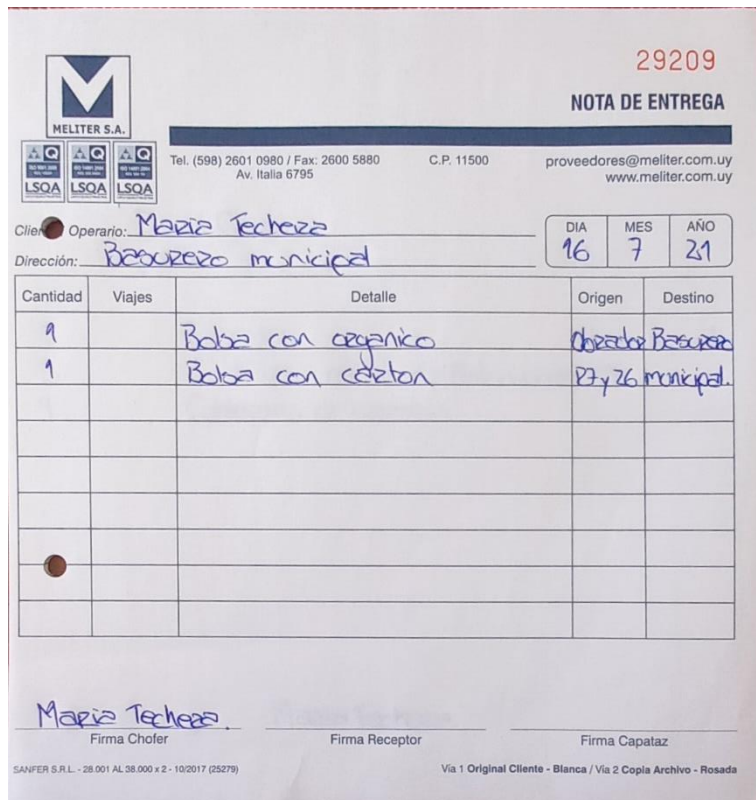 29209
NOTA DE ENTREGA
M
MELITER S.A.
LSQA LSQA LSQA
Tel. (598) 2601 0980 / Fax: 2600 5880 C.P. 11500 proveedores@meliter.com.uy
Av. Italia 6795 www.meliter.com.uy
Operario: Maria Techera
Dirección: Basurero municipal
DIA MES AÑO
16 7 21
Cantidad Viajes Detalle Origen Destino
Bolsa con organico Obrador Basurero
1 Bolsa con carton P7 y 26 municipal.
Maria Techera.
Firma Chofer Firma Receptor Firma Capataz
SANFER S.R.L. - 28.001 AL 38.000 x 2 - 10/2017 (25279) Vía 1 Original Cliente - Blanca / Vía 2 Copia Archivo - Rosada